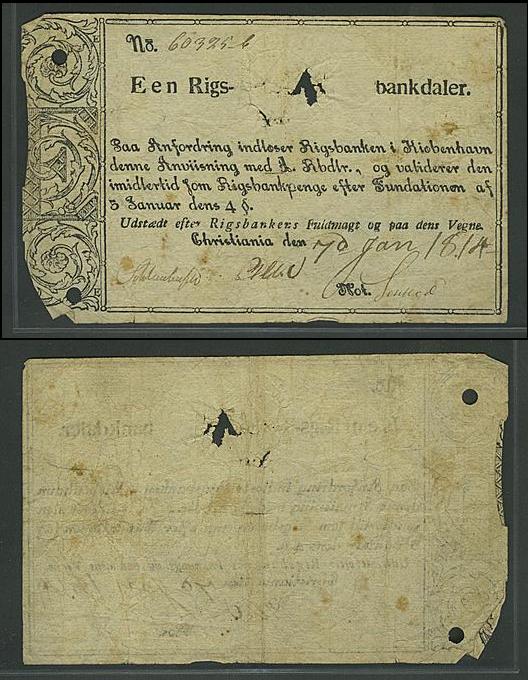 No. 60325
Een Rigs- bankdaler.
Paa Anfordring indløser Rigsbanken i Kiøbenhavn
denne Anviisning med 1 Rbdlr., og validerer den
imidlertid som Rigsbankpenge efter Fundationen af
5 Januar dens 4 §.
Udstædt efter Rigsbankens Fuldmagt og paa dens Vegne.
Christiania den 7d Jan 1814
Not.